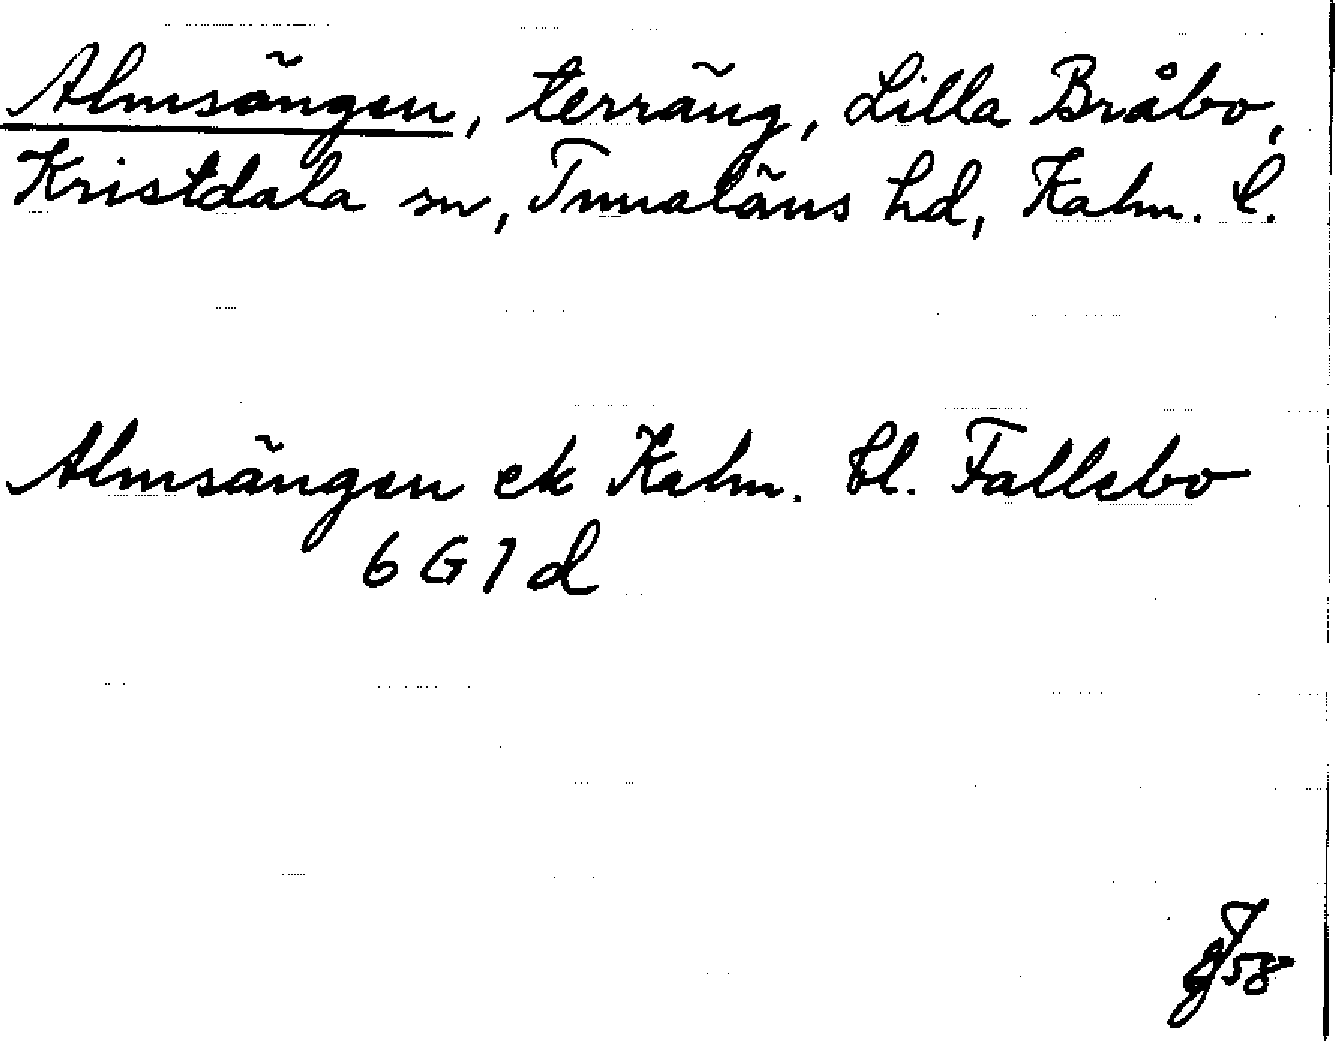 Almsängen, terräng, Lilla Bråbo,
Kristdala sn, Tunaläns hd, Kalm. l.
Almsängen ek Kalm. bl. Fallebo
6 G 7 d
58